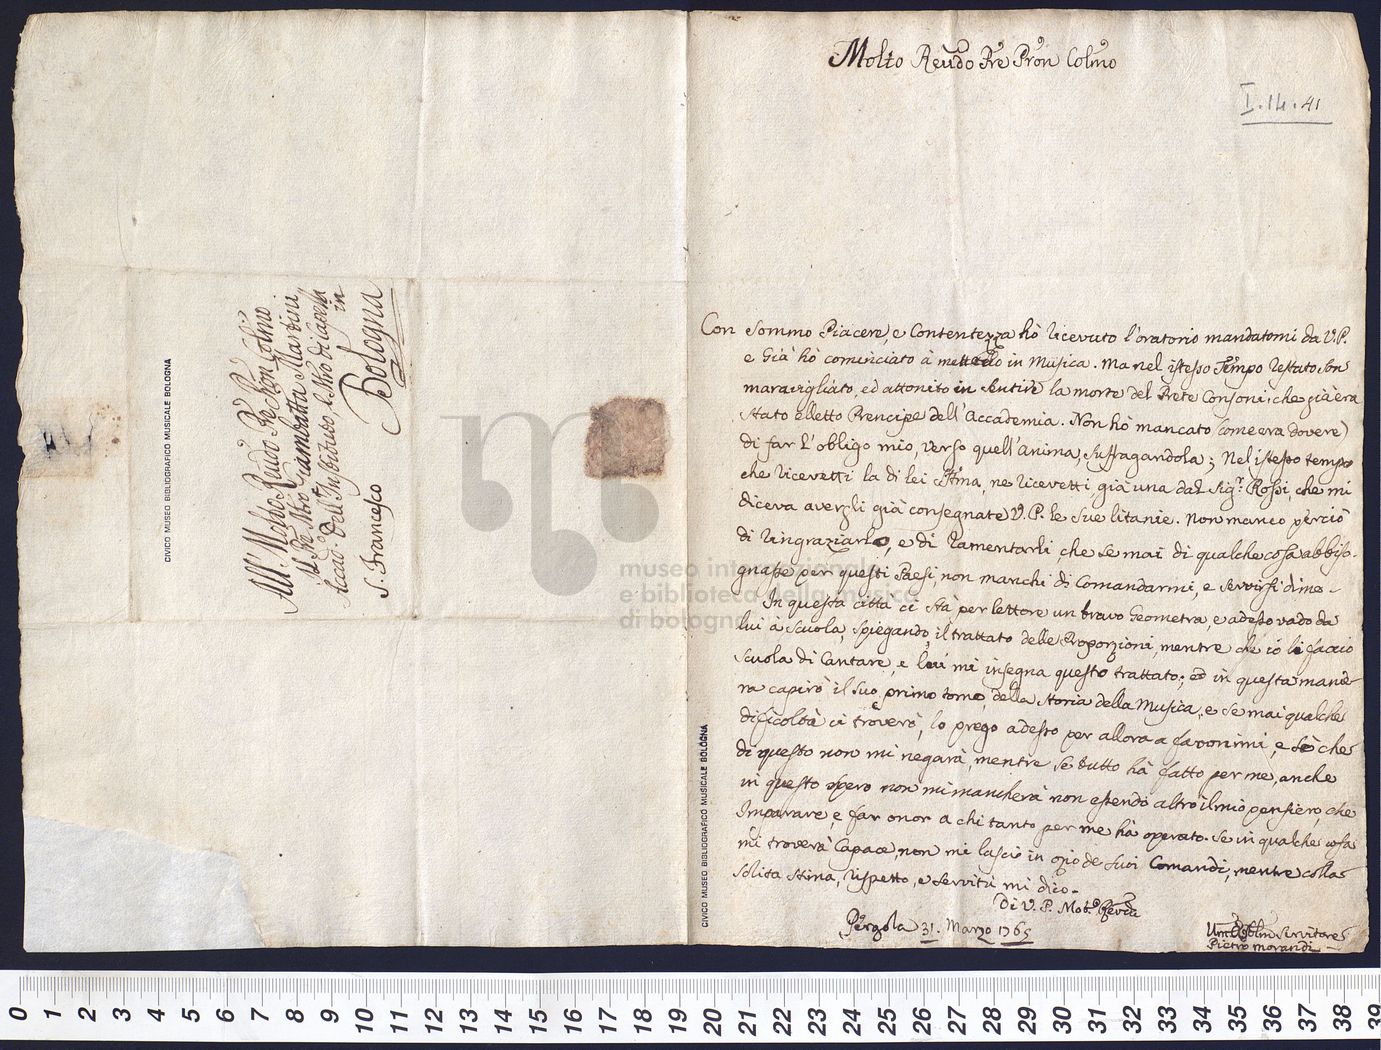 All' Molto Reudo Pre Pron Colmo
Il Pre Mro Giambatta Martini
Accad. dell'Instituto, e Mro di Capella
in
S. Francesco
Bologna
CIVICO MUSEO BIBLIOGRAFICO MUSICALE BOLOGNA
Molto Reudo Pre Pron Colmo
I.14.41
Con sommo Piacere, e Contentezza hò ricevuto l'oratorio mandatomi da V.P.
e Già hò cominciato à metterlo in Musica. Ma nel istesso Tempo restato son
maravigliato, ed attonito in sentire la morte del Prete Consoni, che già era
stato eletto Prencipe dell'Accademia. Non hò mancato (come era dovere)
di far l'obligo mio, verso quell'anima, suffragandola; Nel istesso tempo
che ricevetti la di lei Stima, ne ricevetti già una dal Sig.r Rossi, che mi
diceva avergli già consegnate V.P. le sue litanie. Non manco perciò
di ringraziarlo, e di ramentarli, che se mai di qualche cosa abbiso-
gnasse per questi Paesi, non manchi di Comandarmi, e servirsi di me-
In questa città ci stà per lettore un bravo Geometra, e adesso vado da
lui à scuola, spiegando il trattato delle Proporzioni, mentre che io li faccio
scuola di Cantare, e lui mi insegna questo trattato; ed in questa manie-
ra capirò il suo primo tomo della Storia della Musica, e se mai qualche
dificoltà ci troverò, lo prego adesso per allora a favorirmi, e sò che
di questo non mi negarà, mentre se tutto hà fatto per me, anche
in questo spero non mi mancherà non essendo altro il mio pensiero che
Imparare, e far onor a chi tanto per me hà operato. Se in qualche cosa
mi troverà Capace, non mi lascio in ozio de suoi Comandi, mentre colla
solita stima, rispetto, e servitù mi dico-
Di V. P. Mol.o Revda
Pergola 31. Marzo 1765
Um Obblmo Servitore
Pietro Morandi
CIVICO MUSEO BIBLIOGRAFICO MUSICALE BOLOGNA
museo internazionale
e biblioteca della musica
di bologna
0 1 2 3 4 5 6 7 8 9 10 11 12 13 14 15 16 17 18 19 20 21 22 23 24 25 26 27 28 29 30 31 32 33 34 35 36 37 38 39